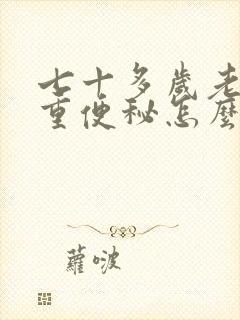 七十多歲老
重便秘怎麼
蘿啵